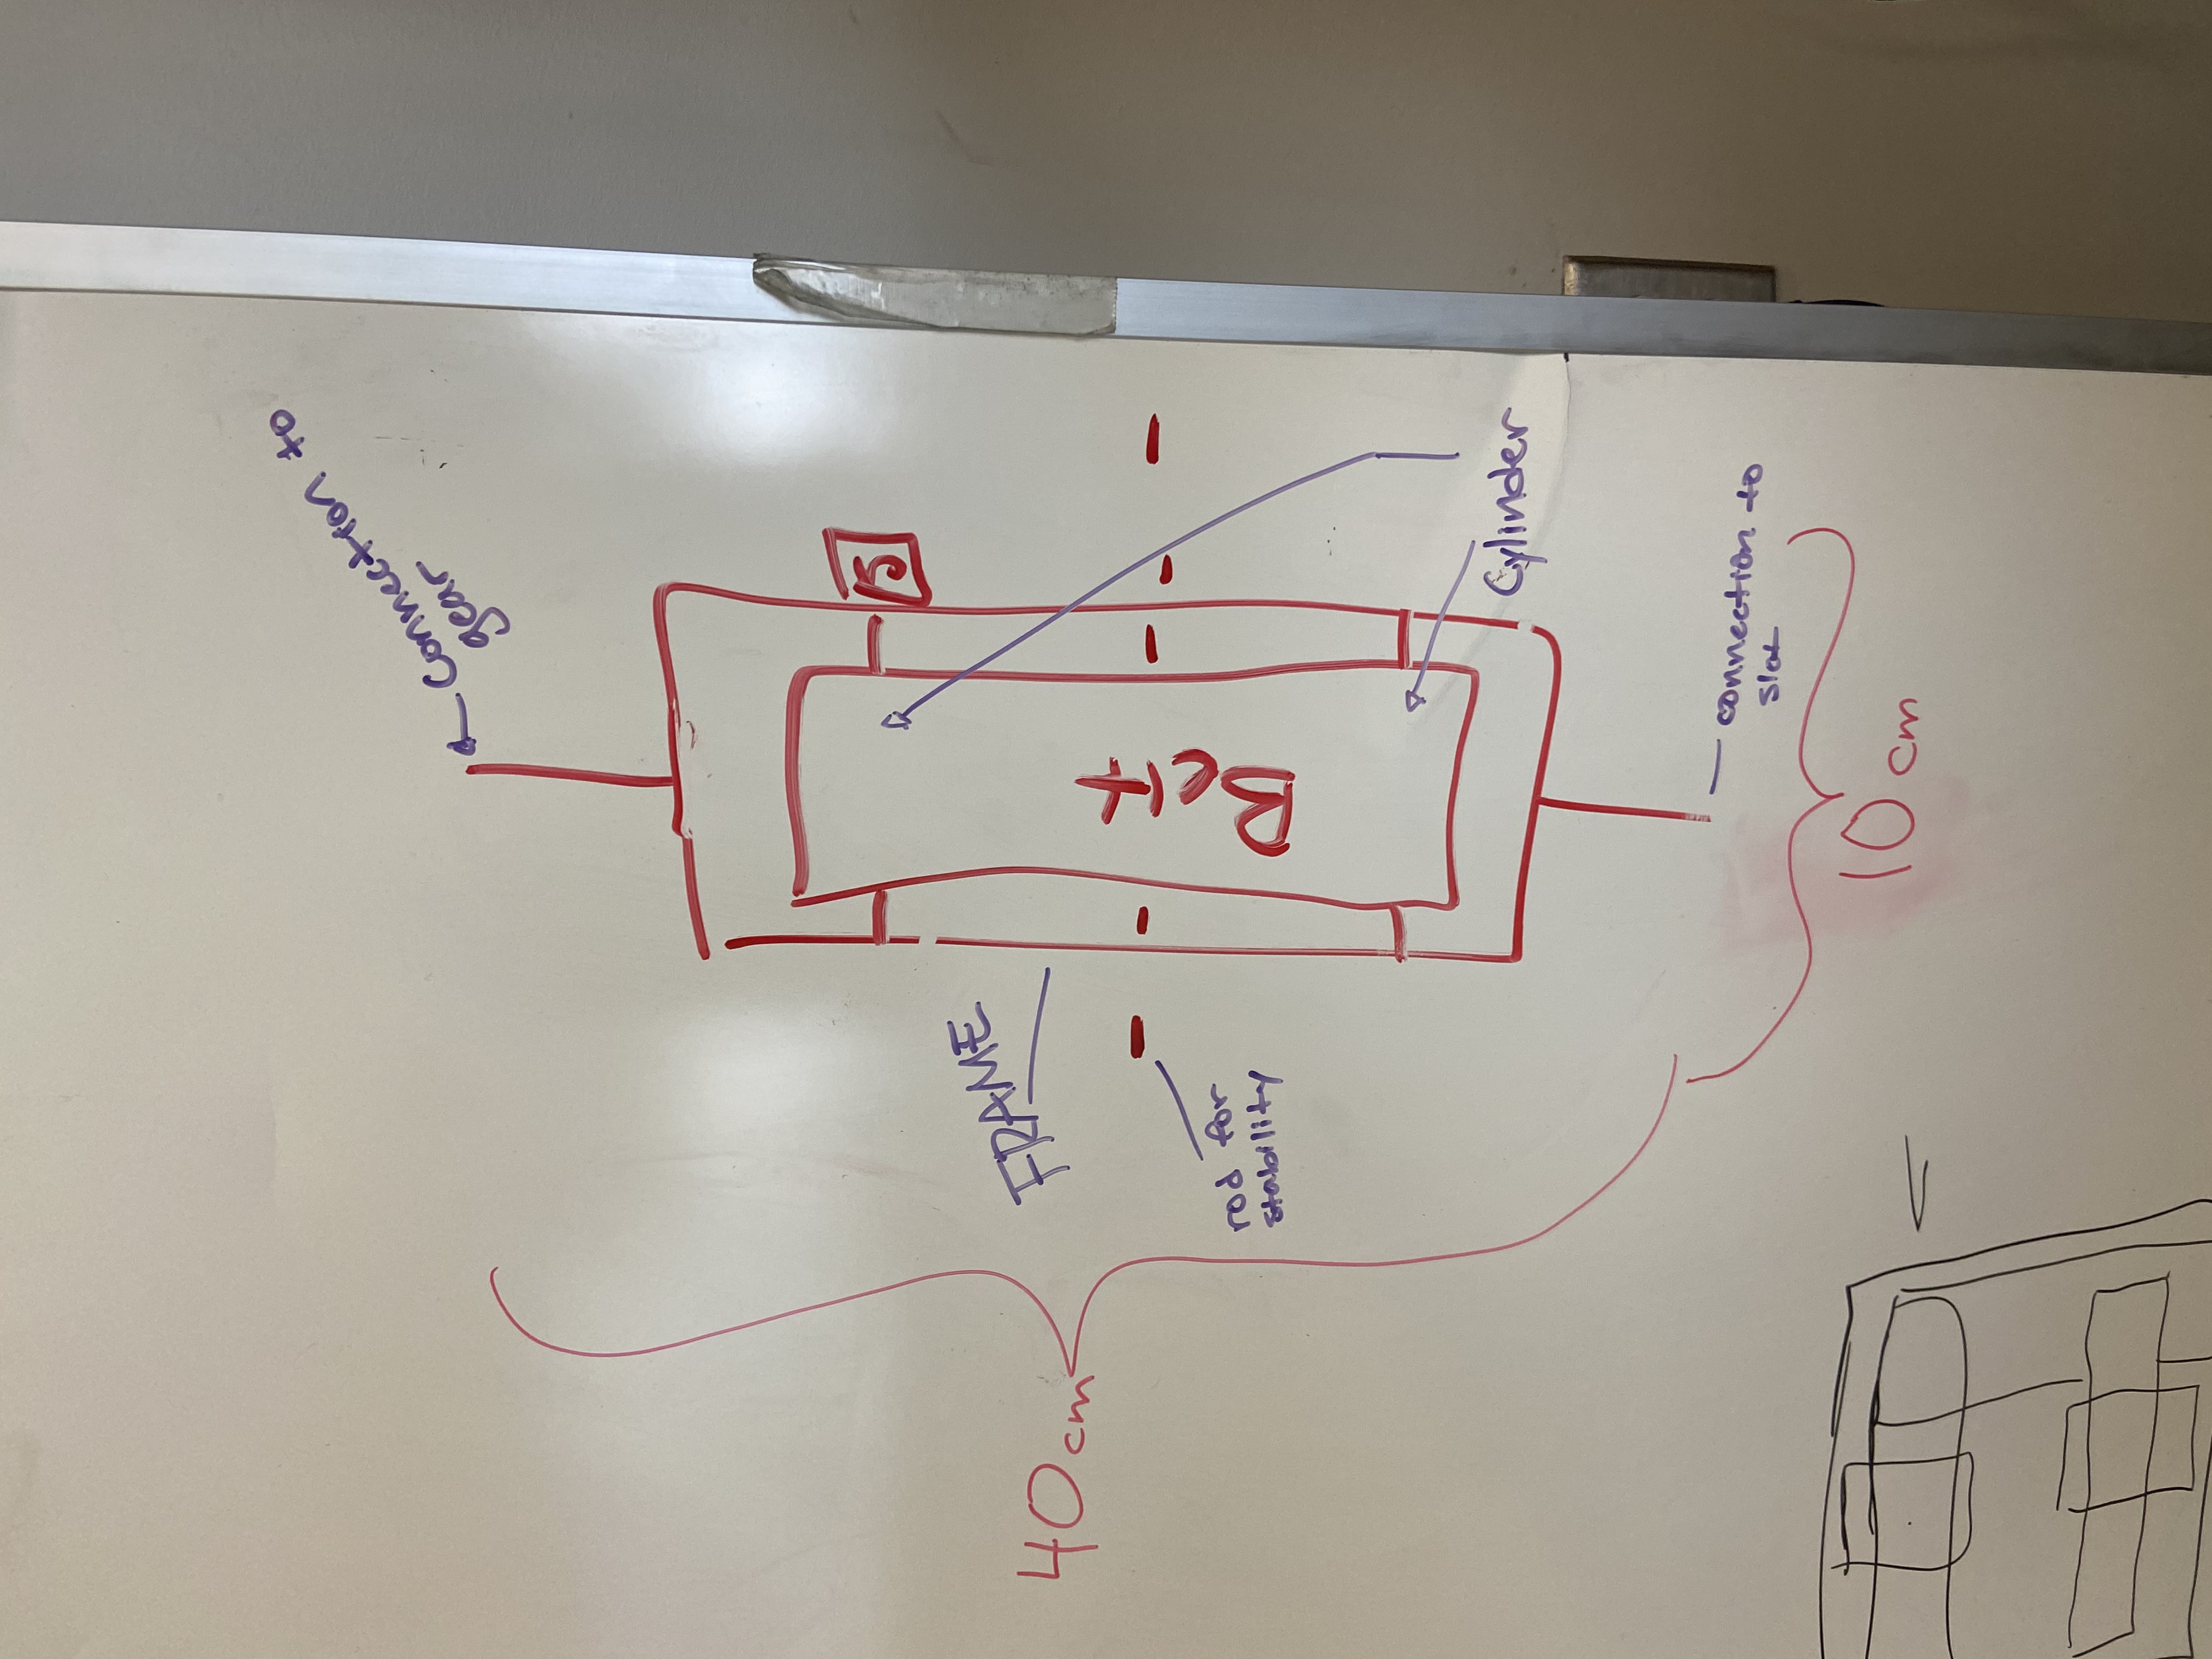 Connection to
gear
FRAME
40 cm
rod for
stability
Belt
Cylinder
connection to
slot
10 cm